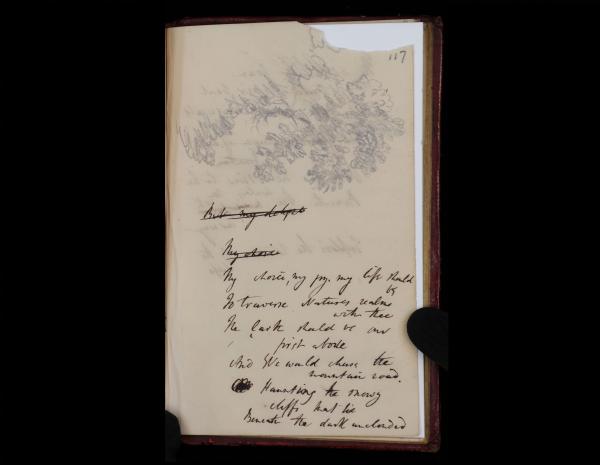 117
But my delight
My choice
My choice, my joy. my life should
be
To traverse Natures realms
with thee
The lark should be our
first abode
And We would chuse the
mountain road.
Haunting the snowy
cliffs that lie
Beneath the dark unclouded